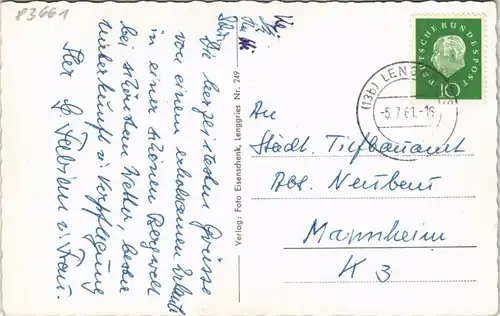 83661
Die herzlichsten Grüsse
von einem erholsamen Urlaub
in einer schönen Bergwelt
bei schönstem Wetter, bester
Unterkunft u. Verpflegung
Herr G. Fabian u. Frau.
Verlag: Foto Eisenschenk, Lenggries Nr. 249
DEUTSCHE BUNDESPOST
10
(13b) LENGG
-5.7.61.-16
An
Städt. Tiefbauamt
Abt. Neubau
Mannheim
K 3